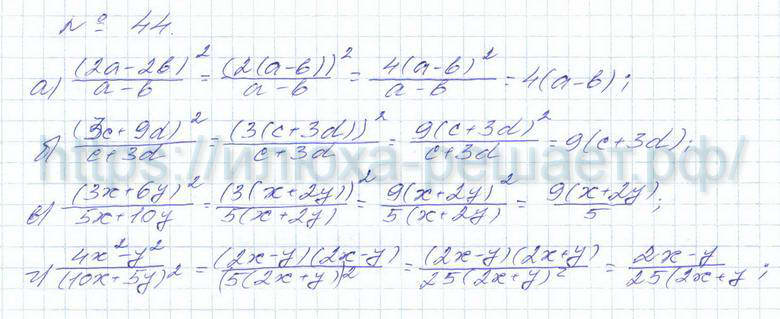 № 44.
а) (2a-2b)²/(a-b) = (2(a-b))²/(a-b) = 4(a-b)²/(a-b) = 4(a-b);
б) (3c+9d)²/(c+3d) = (3(c+3d))²/(c+3d) = 9(c+3d)²/(c+3d) = 9(c+3d);
https://илюха-решает.рф/
в) (3x+6y)²/(5x+10y) = (3(x+2y))²/(5(x+2y)) = 9(x+2y)²/(5(x+2y)) = 9(x+2y)/5;
г) (4x²-y²)/(10x+5y)² = (2x-y)(2x-y)/(5(2x+y))² = (2x-y)(2x+y)/25(2x+y)² = 2x-y/25(2x+y;